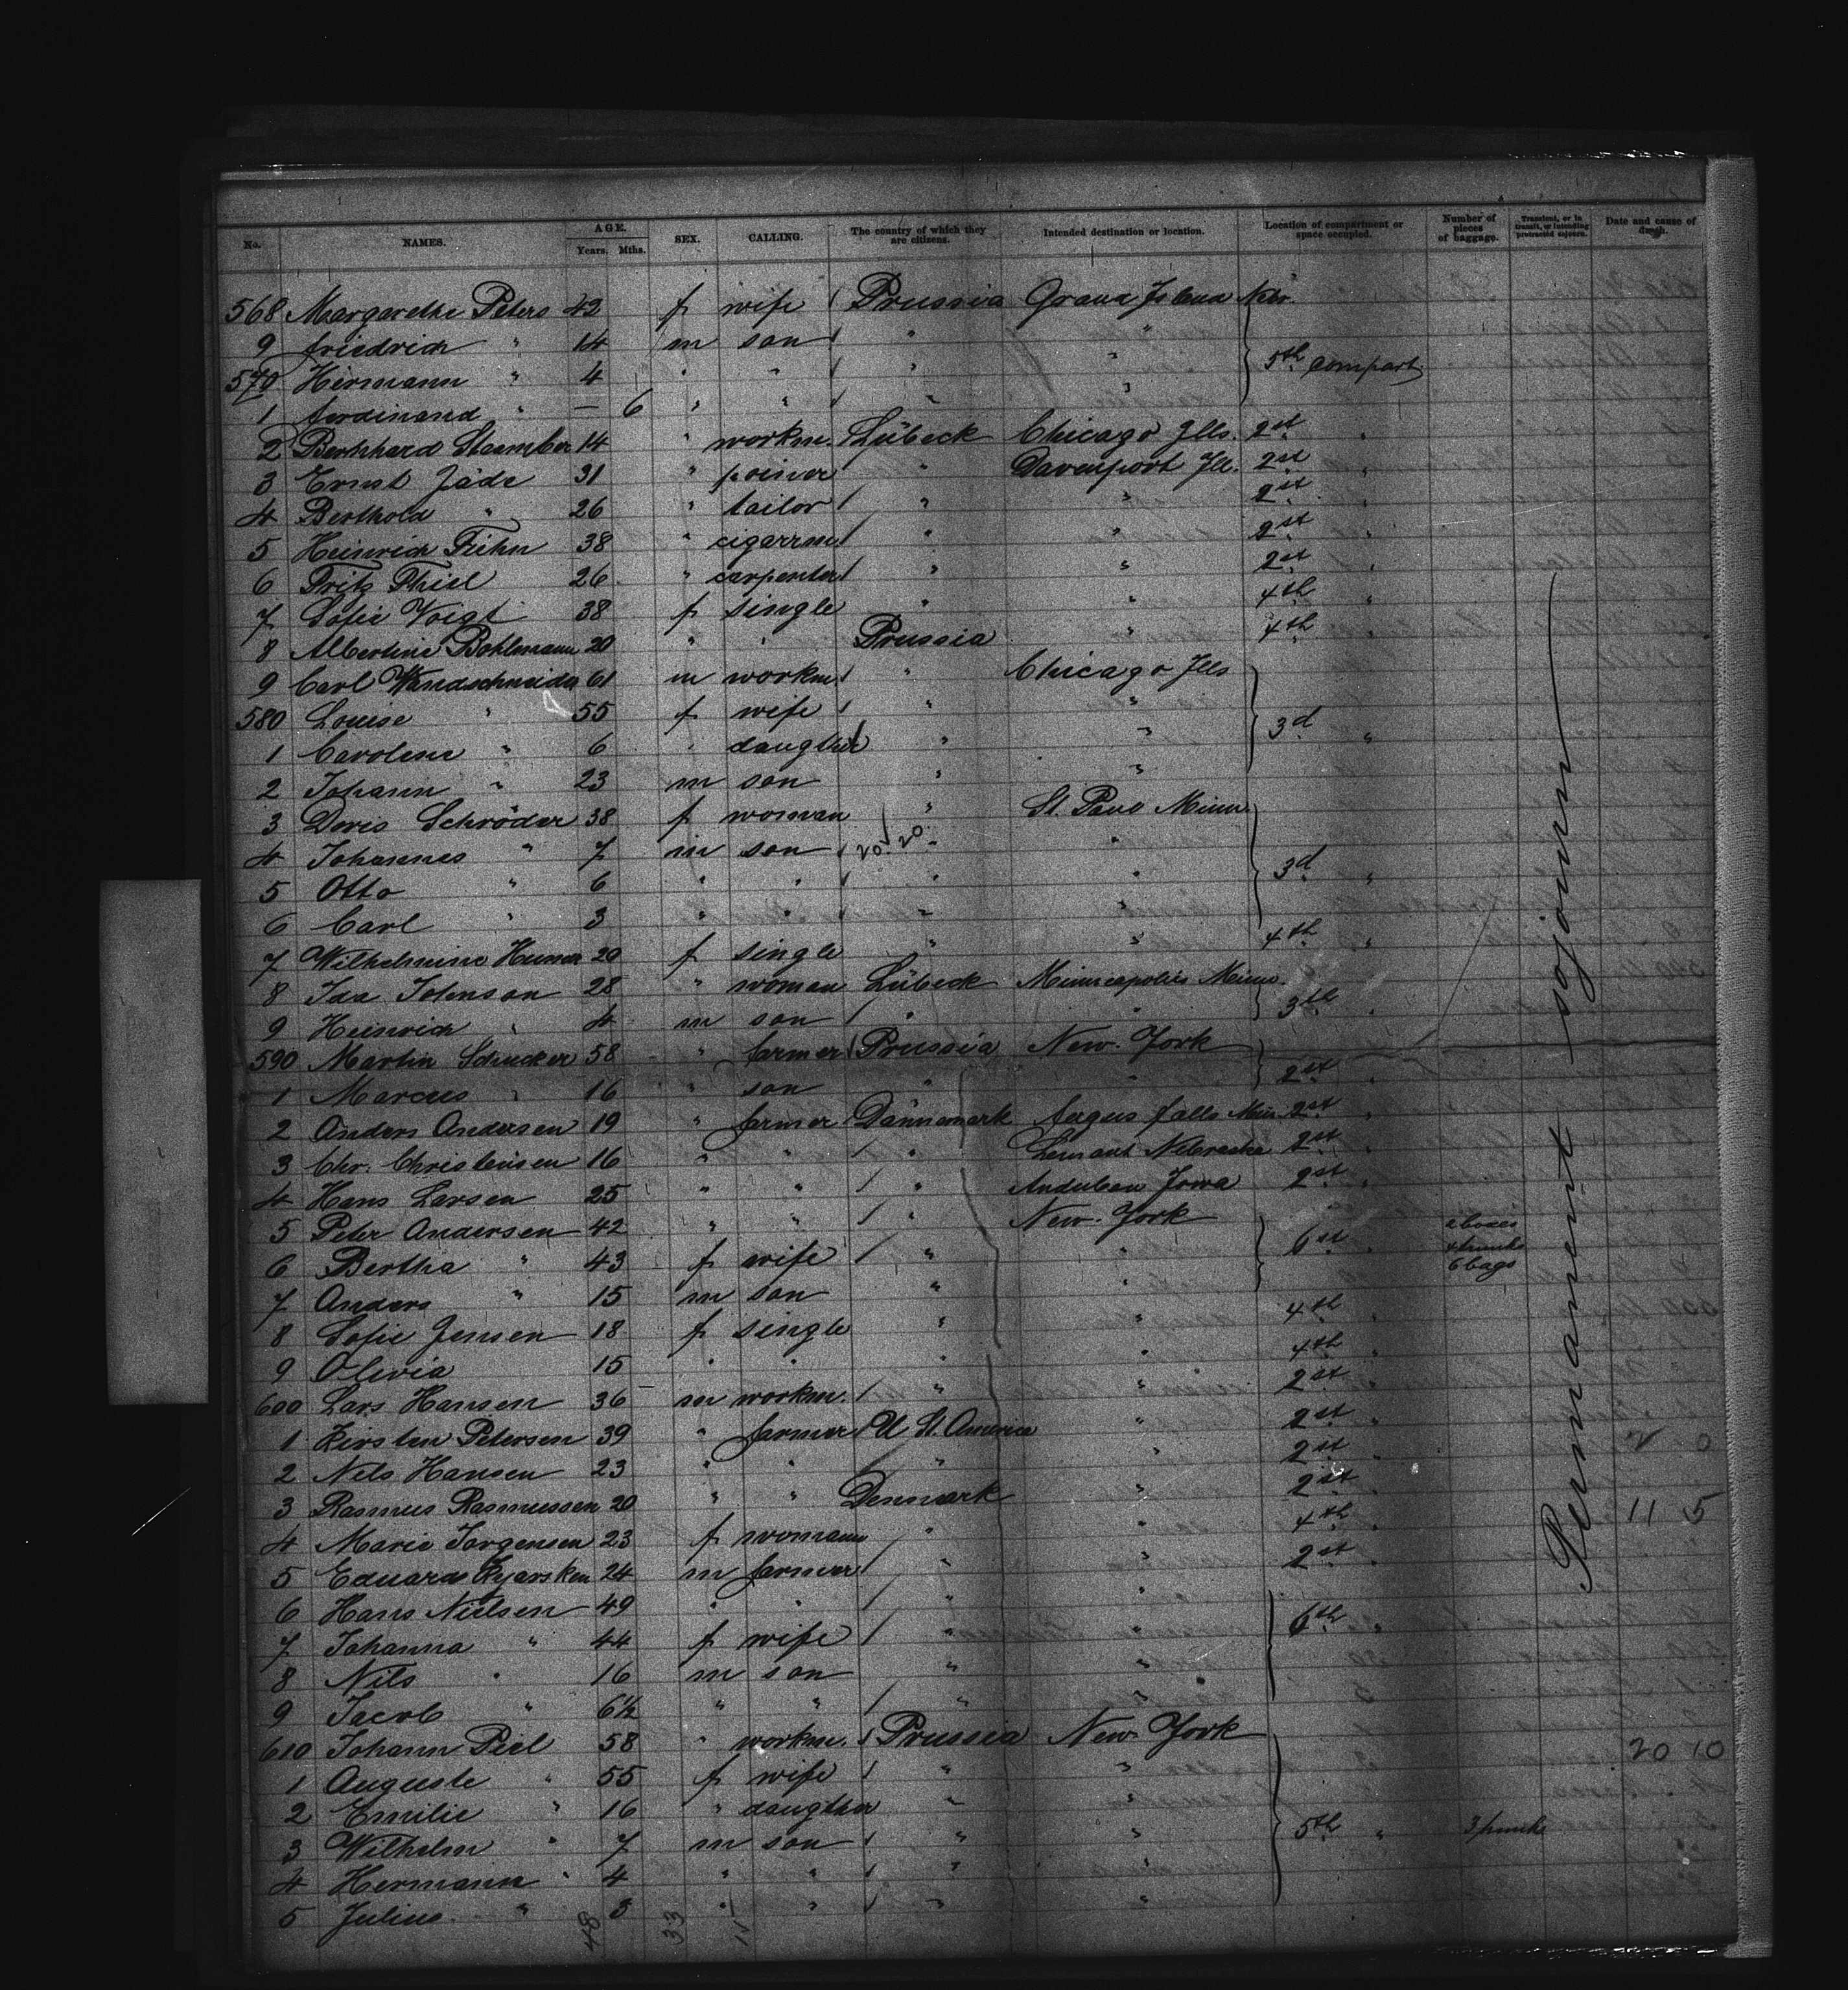 No. NAMES. AGE. Years. Mths. SEX. CALLING. The country of which they are citizens. Intended destination or location. Location of compartment or space occupied. Number of pieces of baggage. Transient, or in transit, or intending protracted sojourn. Date and cause of death.
568 Margarethe Peters 42 f wife Prussia Grand Island Nebr.
9 Friedrich " 14 m son " "
570 Hermann " 4 " " " " 5th compart
1 Ferdinand " — 6 " " " "
2 Bernhard 14 " workm. Lübeck Chicago Ills. 2st "
3 Ernst Jäde 31 " " Davenport Ill. 2st "
4 Berthold " 26 " tailor " " 2st "
5 Heinrich Fiehn 38 " cigarrm. " " 2st "
6 Fritz Thiel 26 " carpenter " " 2st "
7 Sofie Voigt 38 f single " " 4th "
8 Albertine Bohlmann 20 " " Prussia " 4th "
9 Carl Wandschneider 61 m workm. " Chicago Ills
580 Louise " 55 f wife " "
1 Caroline " 6 " daugther " " 3d "
2 Johann " 23 m son " "
3 Doris Schröder 38 f woman " St. Paul Minn
4 Johannes " 7 m son 20. 20. " "
5 Otto " 6 " " " " 3d "
6 Carl " 3 " " " "
7 Wilhelmine 20 f single " " 4th "
8 Ida Johnson 28 " woman Lübeck Minneapolis Minn.
9 Heinrich " 4 m son " " 3th "
590 Martin Schucker 58 " farmer Prussia New-York
1 Marcus " 16 " son " " 2st "
2 Anders Andersen 19 " farmer Dännemark Fergus Falls Min. 2st "
3 Chr. Christensen 16 " " " Nebraska 2st "
4 Hans Larsen 25 " " " Audubon Iowa 2st "
5 Peter Andersen 42 " " " New-York 2 boxes
6 Bertha " 43 f wife " " 6st " 4 trunks 6 bags
7 Anders " 15 m son " "
8 Sofie Jensen 18 f single " " 4th "
9 Olivia 15 " " " " 4th "
600 Lars Hansen 36 m workm. " " 2st "
1 Kirsten Petersen 39 " farmer U St. America " 2st "
2 Nels Hansen 23 " " " " 2st "
3 Rasmus Rasmussen 20 " " Denmark " 2st " 11 5
4 Marie Jorgensen 23 f womann " " 4th "
5 Eduard 24 m farmer " " 2st "
6 Hans Nielsen 49 " " " "
7 Johanna " 44 f wife " " 6th "
8 Nils " 16 m son " "
9 Jacob " 6½ " " " "
610 Johann Piel 58 " workm. Prussia New-York 20 10
1 Auguste " 55 f wife " "
2 Emilie " 16 " daugther " "
3 Wilhelm " 7 m son " " 5th " 3 trunks
4 Hermann " 4 " " " "
5 Julius " 3 " " " "
48 33
Permanent sojourn